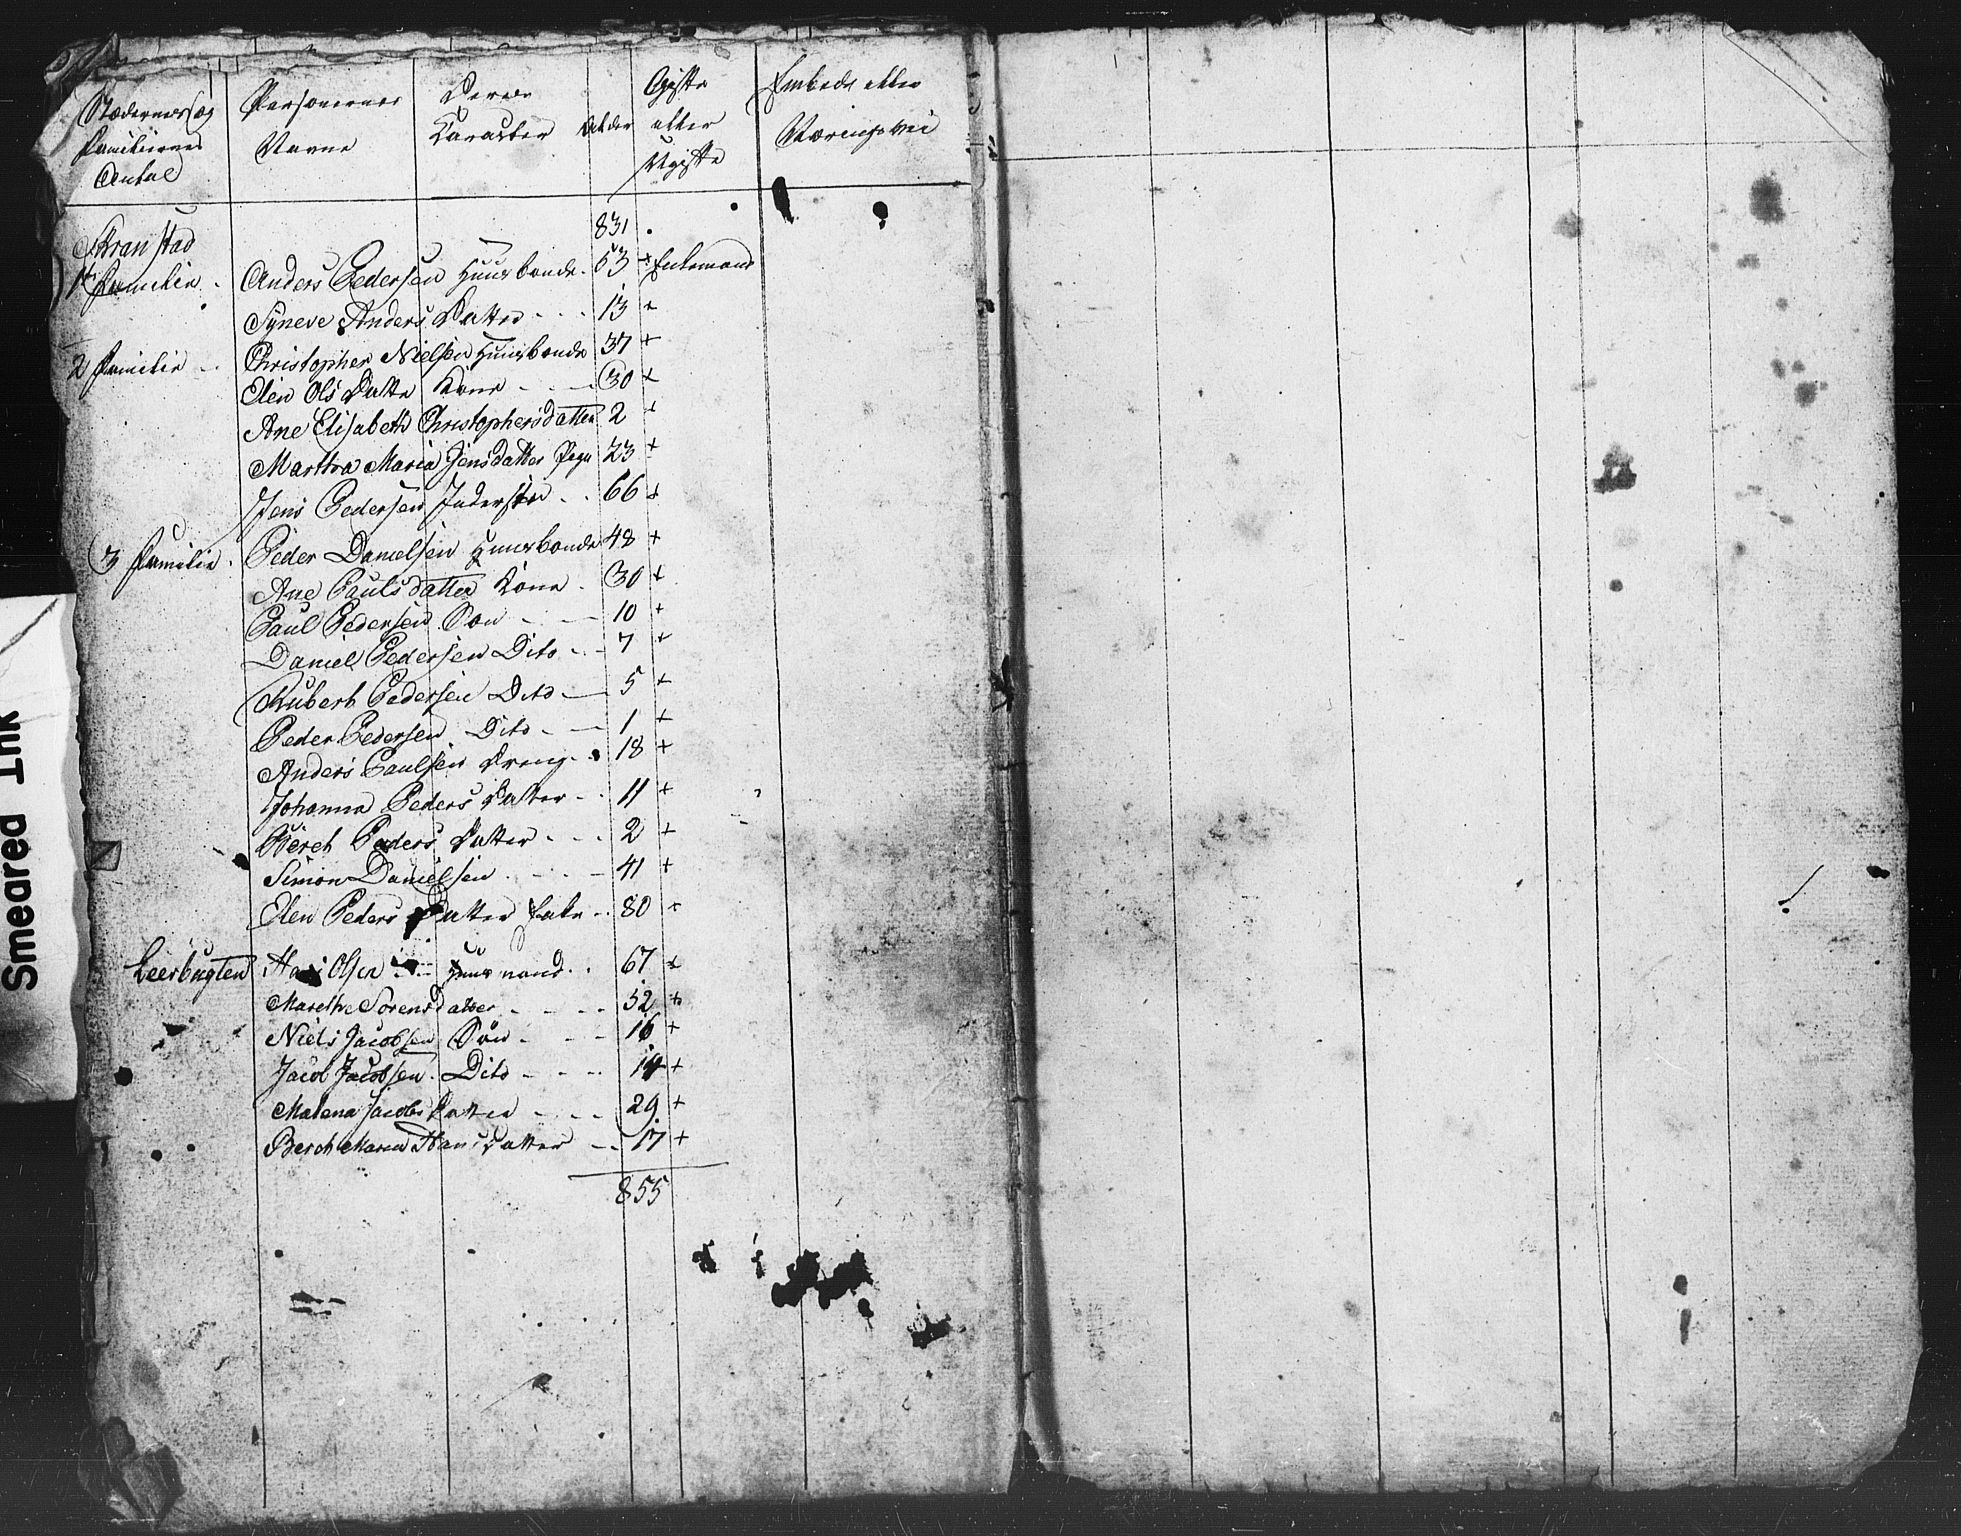 Stædernes og Familiernes Antal
Personernes Navne
Deres Karacter
Alder
Gifte eller Ugifte
Embede eller Næringsvei
831
Stranstad
1 Familie Anders Pedersen Huusbonde 53 + Enkemand
Syneve Anders Datter 13
2 Familie Christopher Nielsen Huusbonde 37 +
Elen Ols Datter Kone 30 +
Ane Elisabeth Christophersdatter 2 +
Martha Maria Jensdatter Pige 23 +
Jens Pedersen Inderste 66 +
3 Familie Peder Danielsen Huusbonde 48 +
Ane Paulsdatter Kone 30 +
Paul Pedersen Søn 10 +
Daniel Pedersen Dito 7 +
Rubert Pedersen Dito 5 +
Peder Pedersen Dito 1 +
Anders Paulsen Dreng 18 +
Johanna Peders Datter 11 +
Beret Peders Datter 2 +
Simon Danielsen 41 +
Elen Peders Datter 80 +
Leerbugten Hans Olsen Huusmand 67 +
Marethe Sorensdatter 52 +
Niels Jacobsen Søn 16 +
Jacob Jacobsen Dito 14 +
Malena Jacobs Datter 29 +
Bereth Maria Hans Datter 17 +
855
Smeared Ink